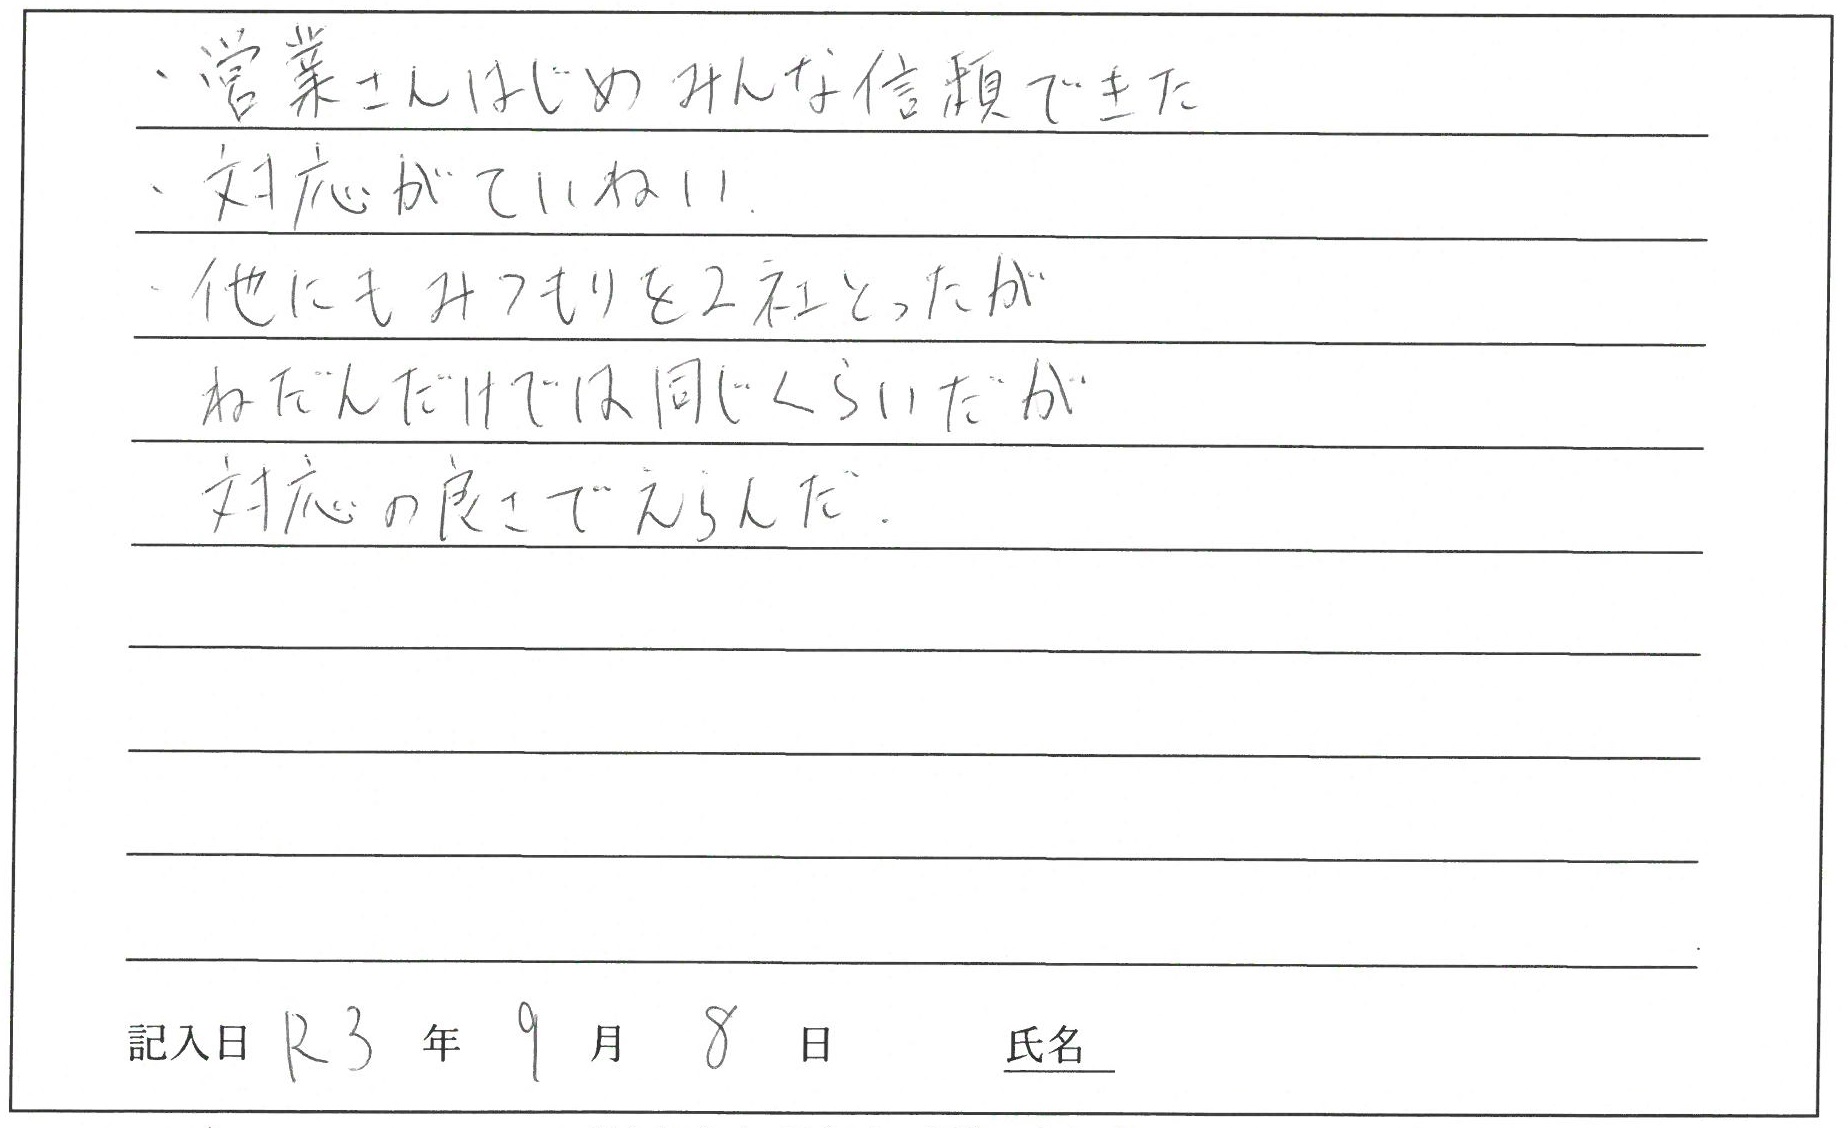 ・営業さんはじめみんな信頼できた
・対応がていねい.
・他にもみつもりを2社とったが
ねだんだけでは同じくらいだが
対応の良さでえらんだ.
記入日 R3 年 9 月 8 日 氏名